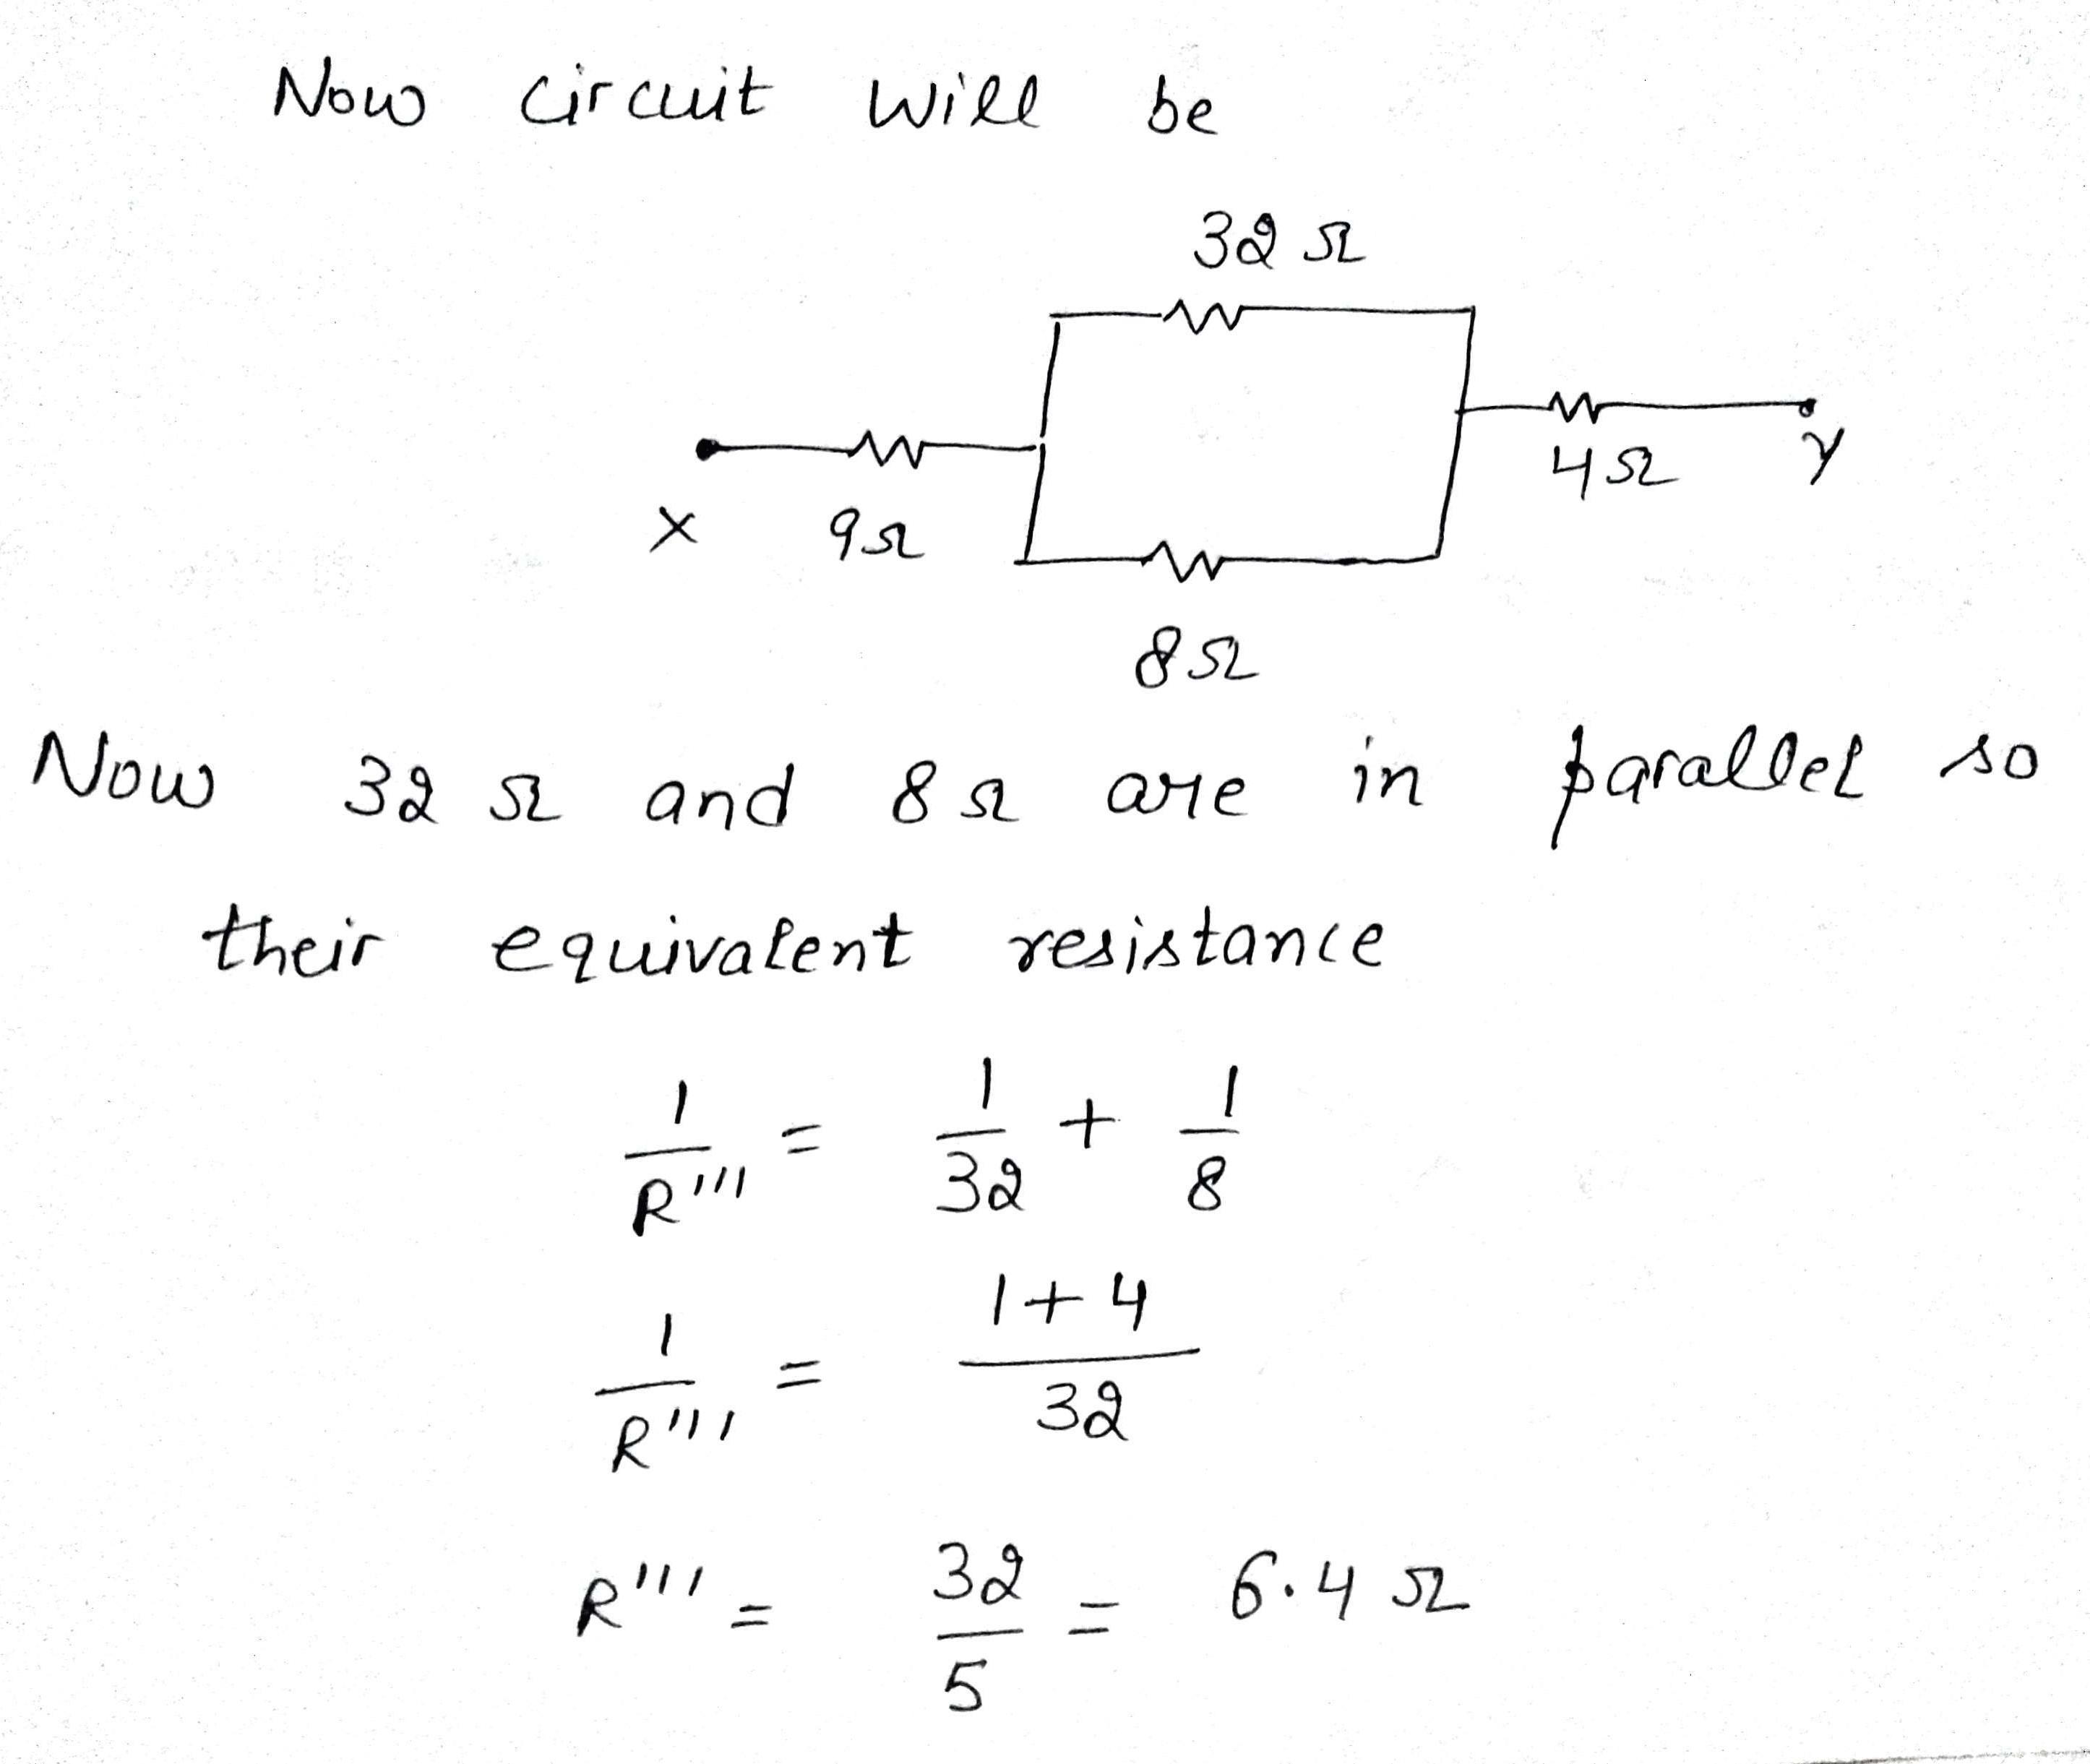 Now circuit will be
32 Ω
X 9Ω 4Ω Y
8Ω
Now 32 Ω and 8 Ω are in parallel so
their equivalent resistance
1/R''' = 1/32 + 1/8
1/R''' = 1+4/32
R''' = 32/5 = 6.4 Ω